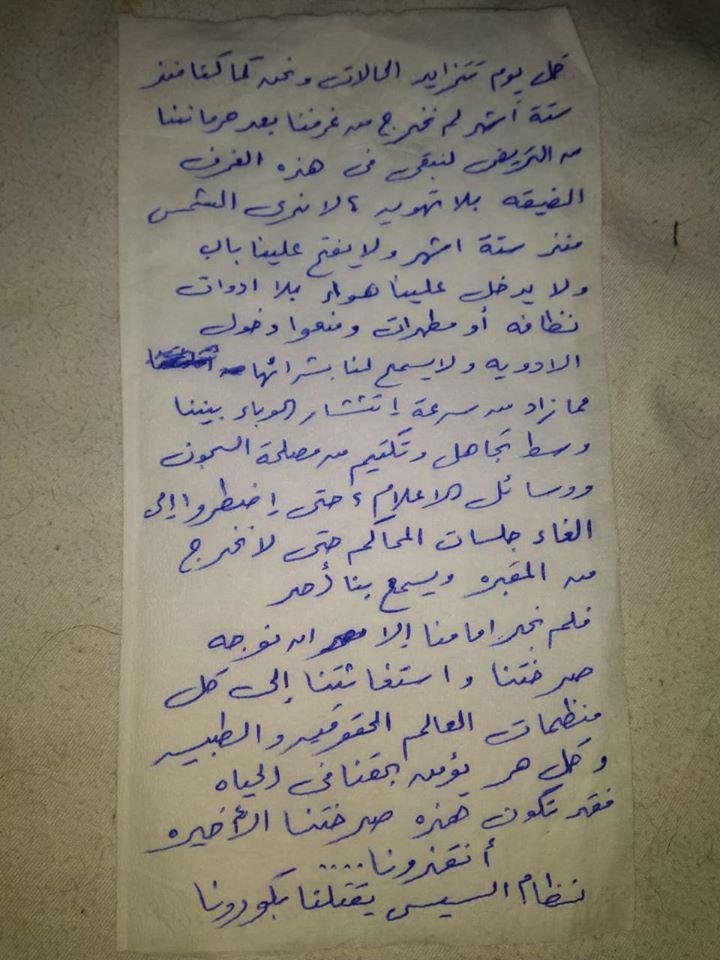 كل يوم تتزايد الحالات ونحن كما كنا منذ
ستة أشهر لم نخرج من غرفنا بعد حرماننا
من التريض لنبقى فى هذه الغرف
الضيقه بلا تهويه، لا نرى الشمس
منذ ستة اشهر ولا يفتح علينا باب
ولا يدخل علينا هواء بلا ادوات
نظافه أو مطهرات ومنعوا دخول
الادويه ولا يسمح لنا بشرائها
مما زاد من سرعة إنتشار الوباء بيننا
وسط تجاهل وتكتيم من مصلحة السجون
ووسائل الاعلام، حتى إضطروا إلى
الغاء جلسات المحاكم حتى لا نخرج
من المقبره ويسمع بنا أحد
فلم نجد امامنا إلا ان نوجه
صرختنا واستغاثتنا إلى كل
منظمات العالم الحقوقيه والطبيه
وكل حر يؤمن بحقنا فى الحياه
فقد تكون هذه صرختنا الأخيره
أنقذونا....
نظام السيسى يقتلنا بكورونا